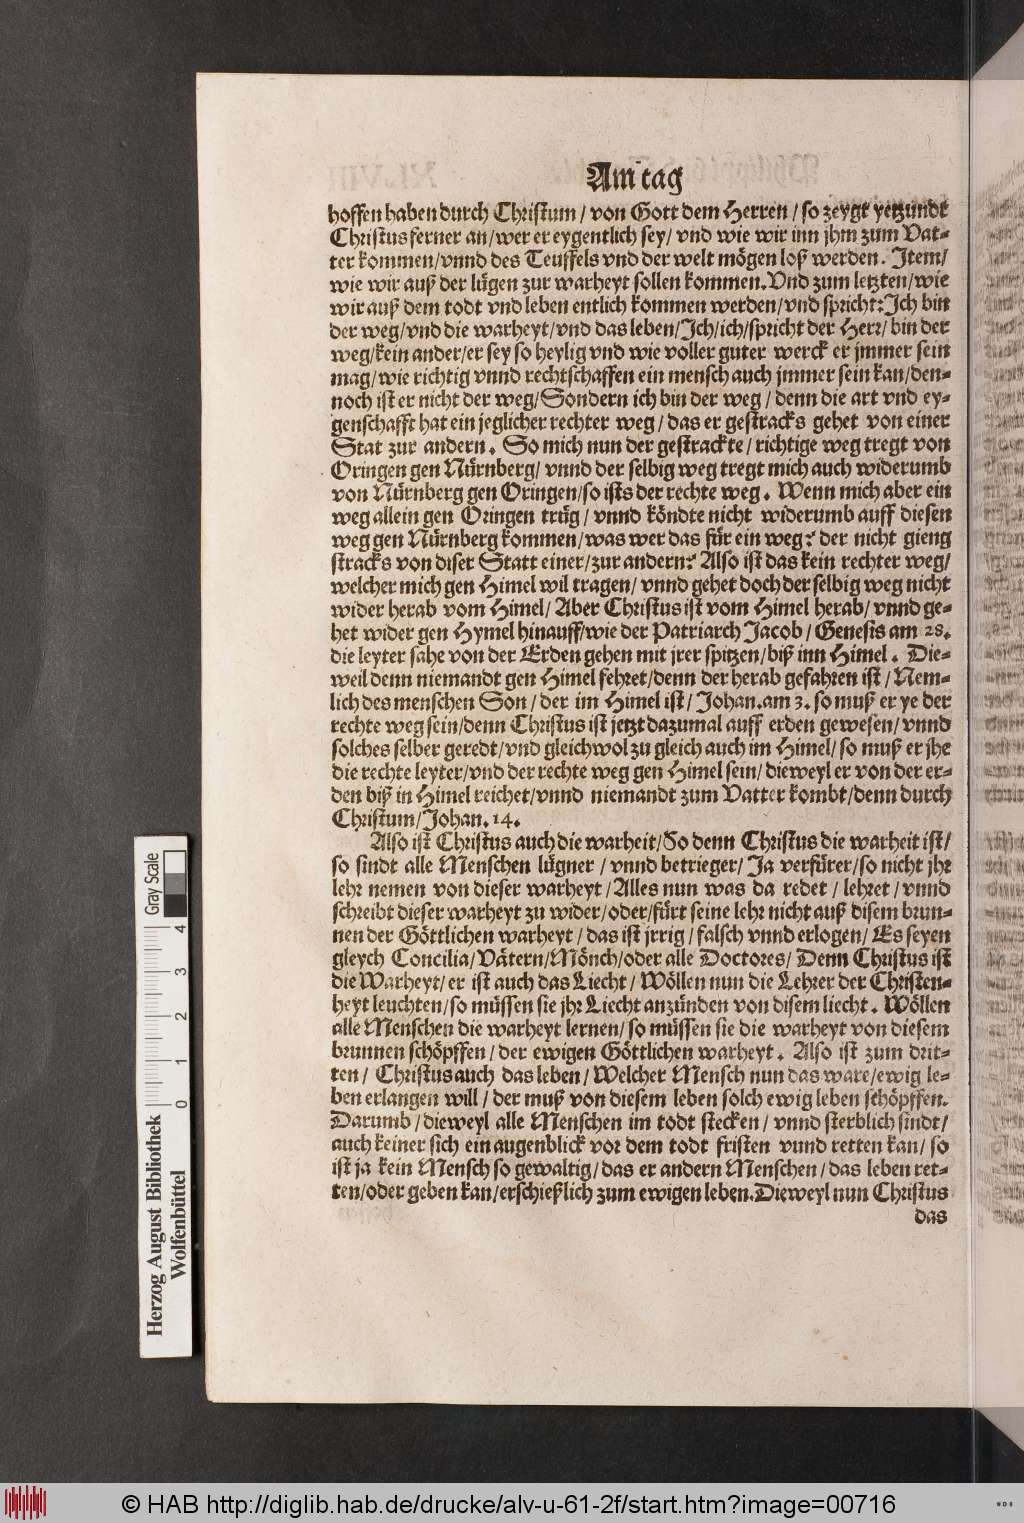 Am tag
hoffen haben durch Christum / von Gott dem Herren / so zeygt yetzundt
Christus ferner an/wer er eygentlich sey/ vnd wie wir inn jhm zum Vat⸗
ter kommen/vnnd des Teuffels vnd der welt mögen loß werden. Item/
wie wir auß der lügen zur warheyt sollen kommen. Vnd zum letzten/wie
wir auß dem todt vnd leben entlich kommen werden/vnd spricht: Ich bin
der weg/vnd die warheyt/vnd das leben/Ich/ich/spricht der Herr/ bin der
weg/kein ander/er sey so heylig vnd wie voller guter werck er jmmer sein
mag/wie richtig vnnd rechtschaffen ein mensch auch jmmer sein kan/den⸗
noch ist er nicht der weg/Sondern ich bin der weg / denn die art vnd ey⸗
genschafft hat ein jeglicher rechter weg / das er gestracks gehet von einer
Stat zur andern. So mich nun der gestrackte / richtige weg tregt von
Oringen gen Nürnberg/ vnnd der selbig weg tregt mich auch widerumb
von Nürnberg gen Oringen/so ists der rechte weg. Wenn mich aber ein
weg allein gen Oringen trüg / vnnd köndte nicht widerumb auff diesen
weg gen Nürnberg kommen/was wer das für ein weg? der nicht gieng
stracks von diser Statt einer/zur andern? Also ist das kein rechter weg/
welcher mich gen Himel wil tragen/ vnnd gehet doch der selbig weg nicht
wider herab vom Himel/ Aber Christus ist vom Himel herab/ vnnd ge⸗
het wider gen Hymel hinauff/wie der Patriarch Jacob / Genesis am 28.
die leyter sahe von der Erden gehen mit jrer spitzen/biß inn Himel. Die⸗
weil denn niemandt gen Himel fehret/denn der herab gefahren ist / Nem⸗
lich des menschen Son / der im Himel ist/ Johan. am 3. so muß er ye der
rechte weg sein/denn Christus ist jetzt dazumal auff erden gewesen/ vnnd
solches selber geredt/vnd gleichwol zu gleich auch im Himel/ so muß er jhe
die rechte leyter/vnd der rechte weg gen Himel sein/ dieweyl er von der er⸗
den biß in Himel reichet/vnnd niemandt zum Vatter kombt/denn durch
Christum/Johan. 14.
Also ist Christus auch die warheit/So denn Christus die warheit ist/
so sindt alle Menschen lügner / vnnd betrieger/ Ja verfürer/so nicht jhr
lehr nemen von dieser warheyt / Alles nun was da redet / lehret / vnnd
schreibt dieser warheyt zu wider/oder/fürt seine lehr nicht auß disem brun⸗
nen der Göttlichen warheyt / das ist jrrig / falsch vnnd erlogen/ Es seyen
gleych Concilia/Vätern/Mönch/oder alle Doctores/ Denn Christus ist
die Warheyt/er ist auch das Liecht / Wöllen nun die Lehrer der Christen⸗
heyt leuchten/so müssen sie jhr Liecht anzünden von disem liecht. Wöllen
alle Menschen die warheyt lernen/so müssen sie die warheyt von diesem
brunnen schöpffen / der ewigen Göttlichen warheyt. Also ist zum drit⸗
ten / Christus auch das leben / Welcher Mensch nun das ware/ewig le⸗
ben erlangen will / der muß von diesem leben solch ewig leben schöpffen.
Darumb / dieweyl alle Menschen im todt stecken / vnnd sterblich sindt/
auch keiner sich ein augenblick vor dem todt fristen vund retten kan/ so
ist ja kein Mensch so gewaltig/das er andern Menschen/das leben ret⸗
ten/oder geben kan/erschießlich zum ewigen leben. Dieweyl nun Christus
das
Gray Scale
0 1 2 3 4
Herzog August Bibliothek
Wolfenbüttel
© HAB http://diglib.hab.de/drucke/alv-u-61-2f/start.htm?image=00716